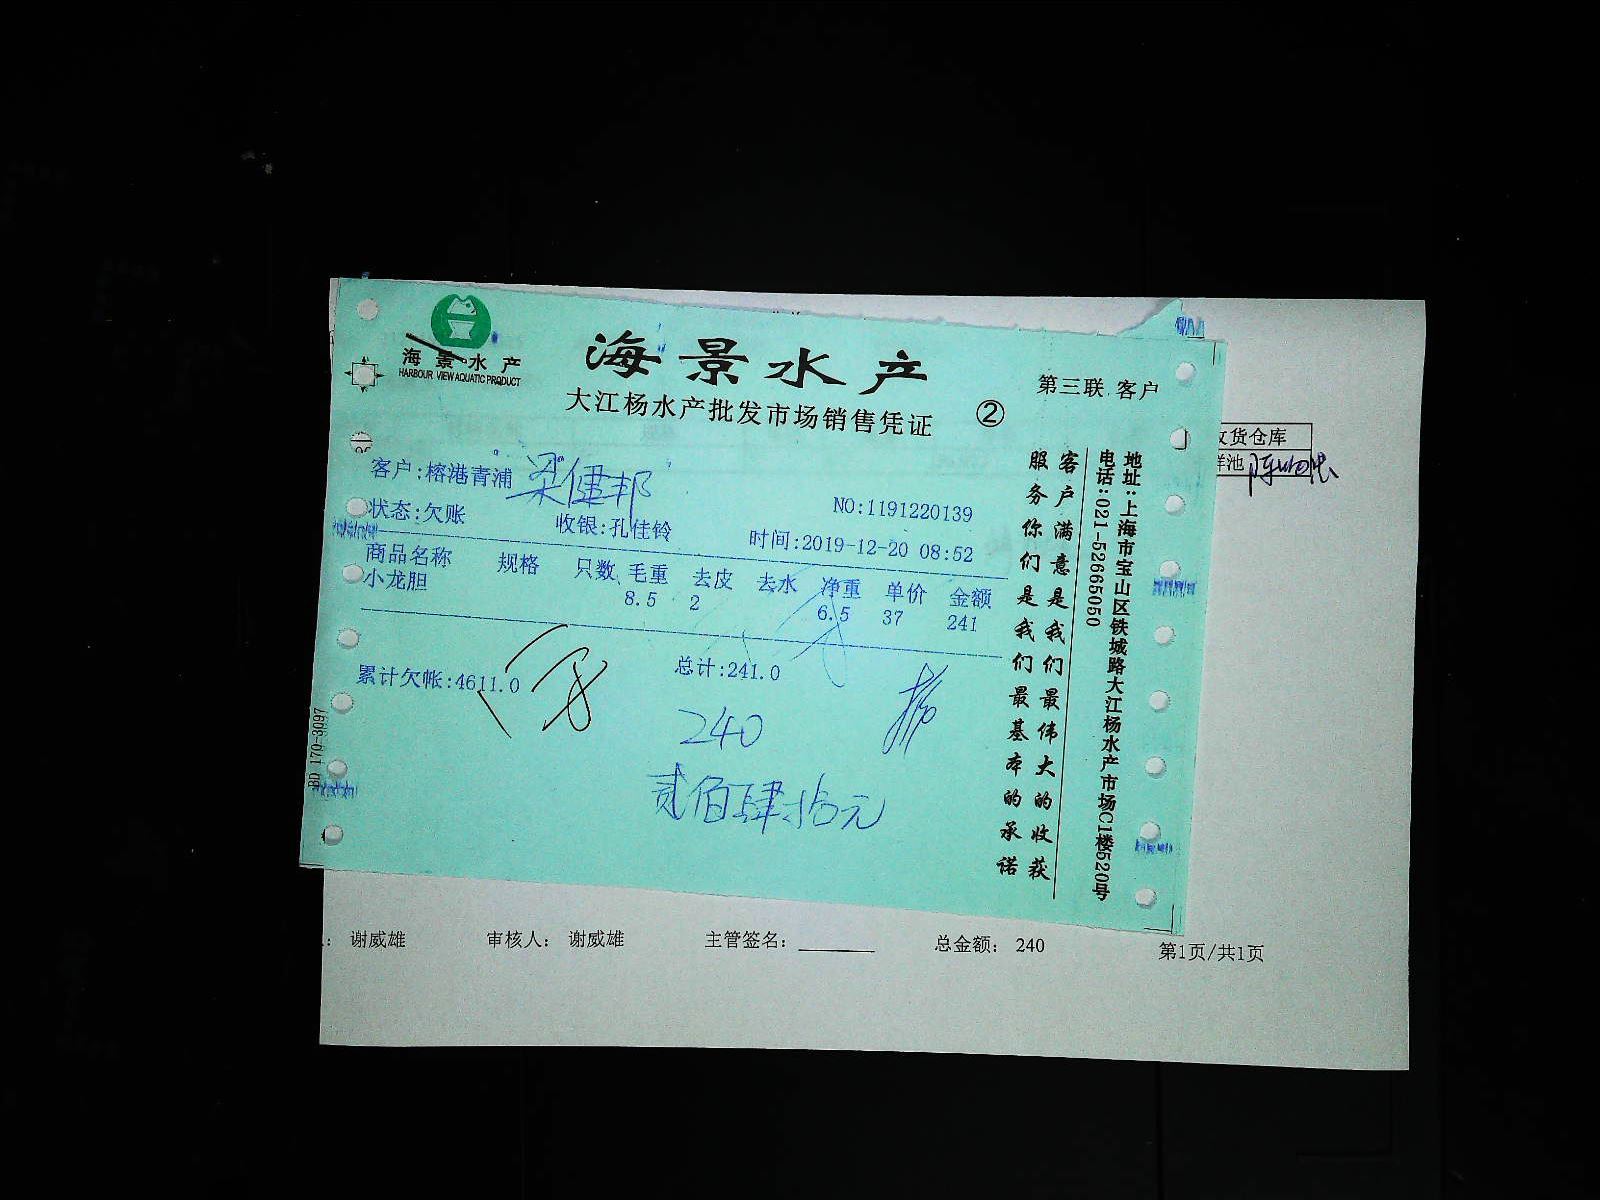 海景水产
HARBOUR VIEW AQUATIC PRODUCT
海景水产
大江杨水产批发市场销售凭证
②
第三联 客户
客户:榕港青浦 梁健邦
NO:1191220139
状态:欠账 收银:孔佳铃 时间:2019-12-20 08:52
商品名称 规格 只数 毛重 去皮 去水 净重 单价 金额
小龙胆 8.5 2 6.5 37 241
累计欠帐:4611.0 总计:241.0
240
贰佰肆拾元
客户满意是我们最伟大的收获
服务你们是我们最基本的承诺
地址:上海市宝山区铁城路大江杨水产市场C1楼520号
电话:021-52665050
BD 170-3097
货仓库
洋池
谢威雄 审核人: 谢威雄 主管签名: 总金额: 240 第1页/共1页